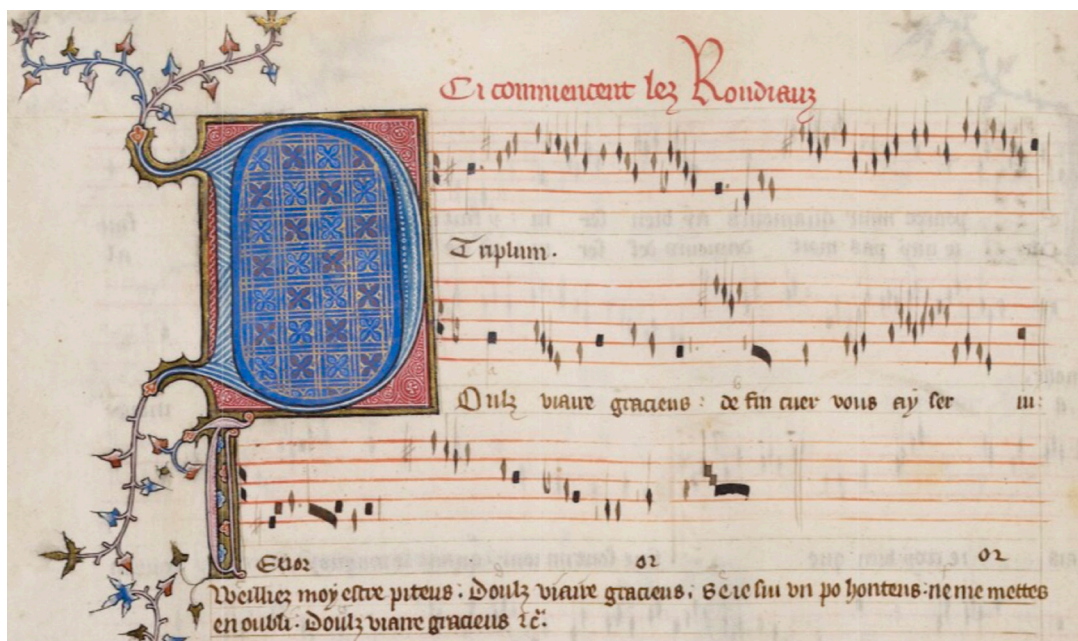 Ci commencent lez Rondiaux
Triplum.
Doulz viaire gracieus : de fin cuer vous ay ser ui :
Tenor or or
Weilliez moy estre piteus : Doulz viaire gracieus : Se ie sui un po honteus : ne me mettes
en oubli : Doulz viaire gracieus &c.